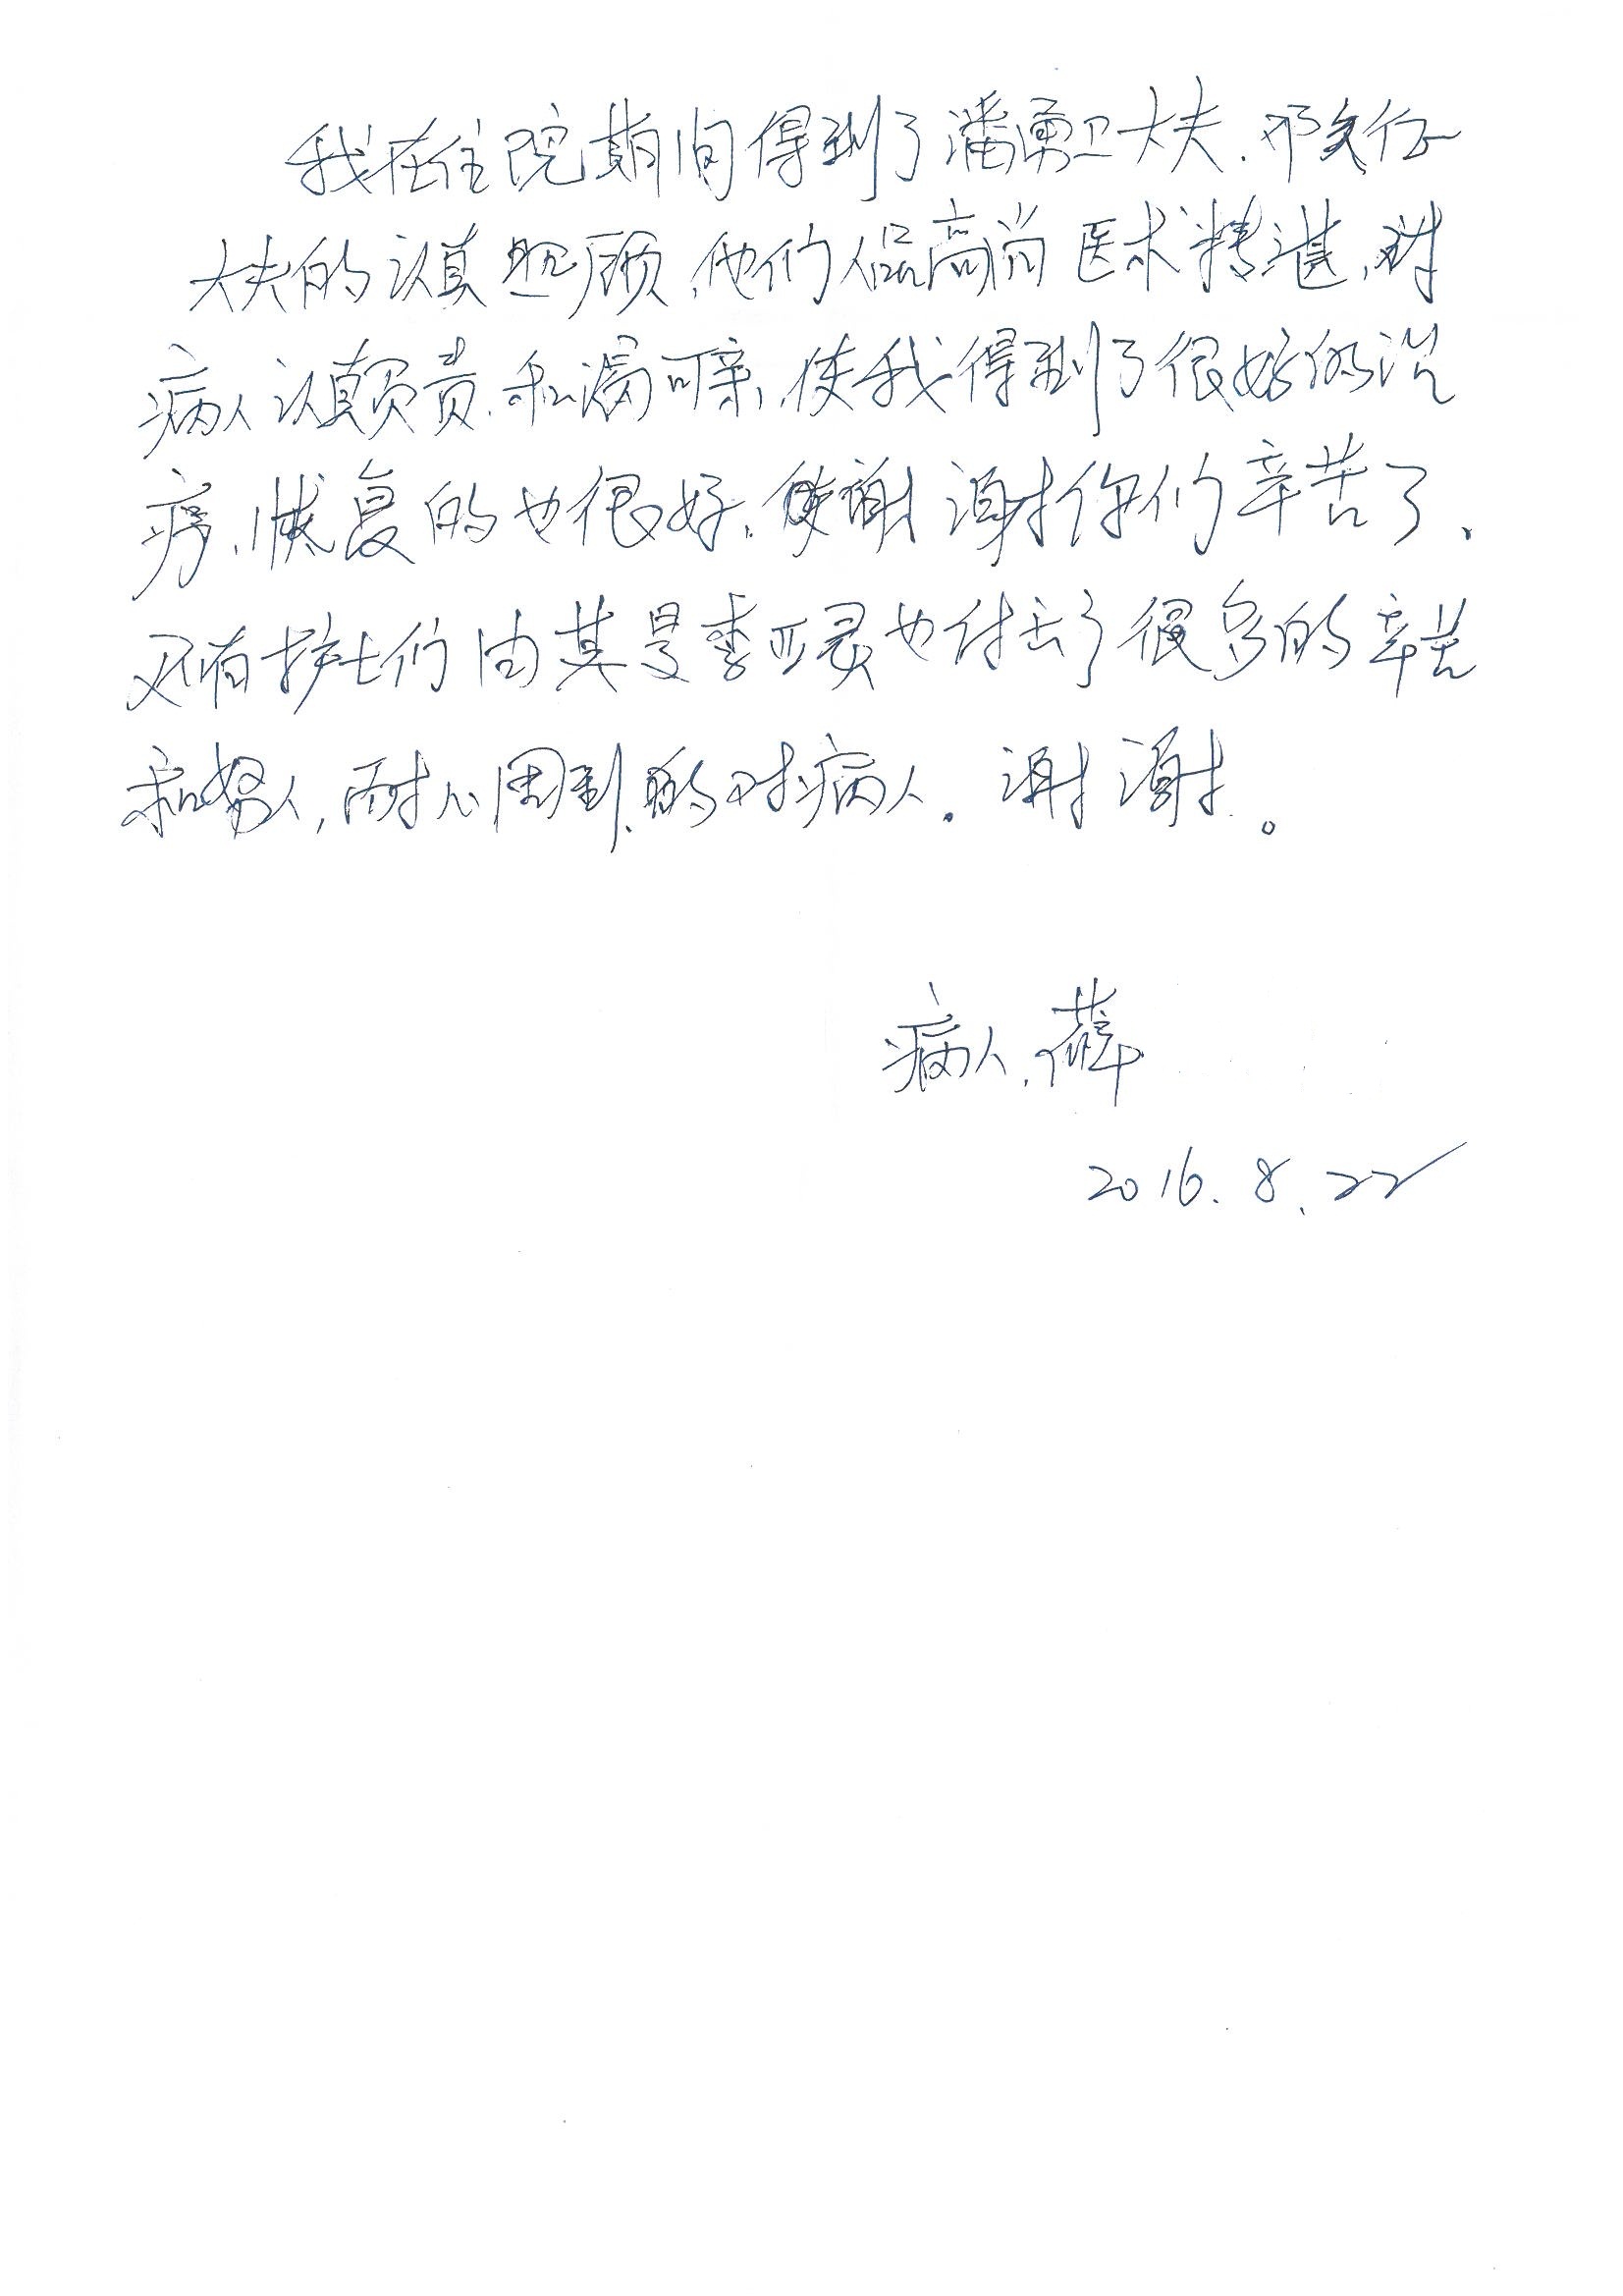 我在住院期间得到了潘勇卫大夫、邓
大夫的认真照顾,他们人品高尚医术精湛,对
病人认真负责,和蔼可亲,使我得到了很好的治
疗,恢复的也很好,谢谢你们辛苦了、
还有护士们由其是李亚灵也付出了很多的辛苦
和努人,耐心周到的对病人。谢谢。
病人,薛
2016.8.22